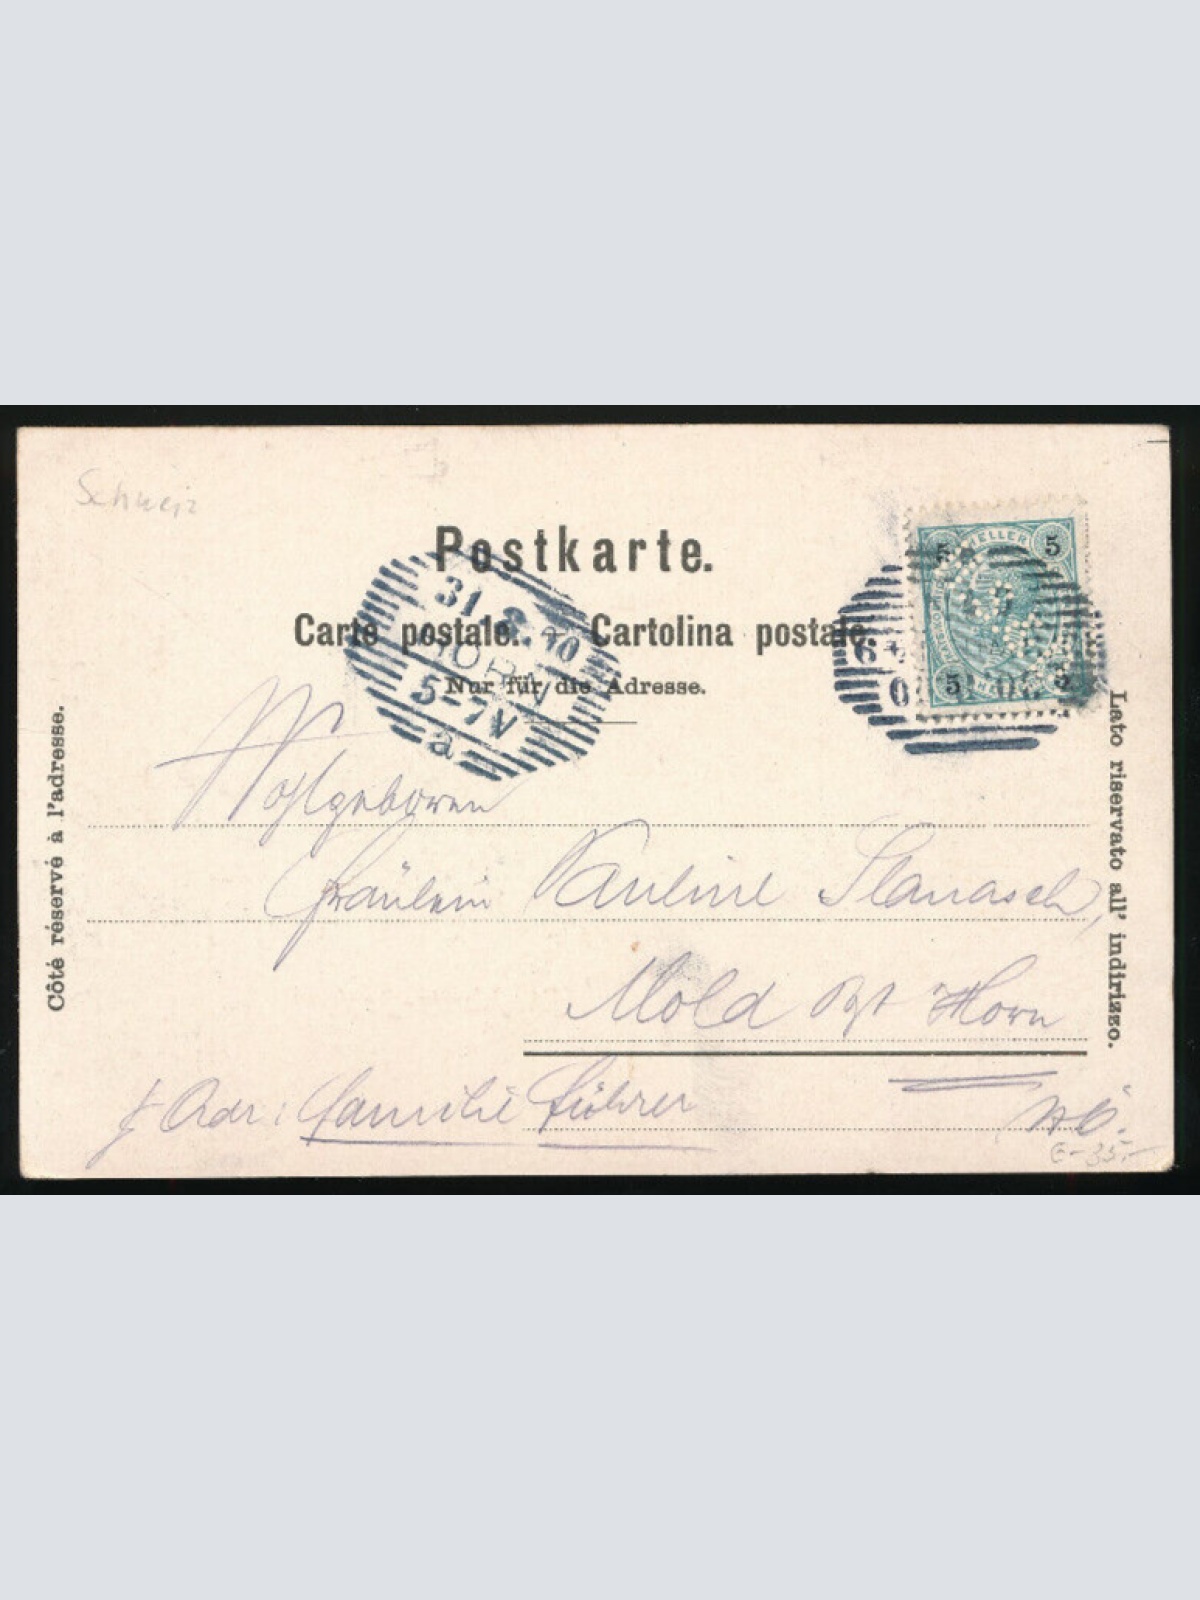 Schweiz
Postkarte.
Carte postale. Cartolina postale.
Nur für die Adresse.
31. 8. 00
HORN
5-7N
a
HELLER
5 5
5 5
Côté réservé à l'adresse.
Lato riservato all' indirizzo.
Wohlgeboren
Fräulein Pauline
Mold Horn
Adr: Familie Führer
NÖ.
€-35.-